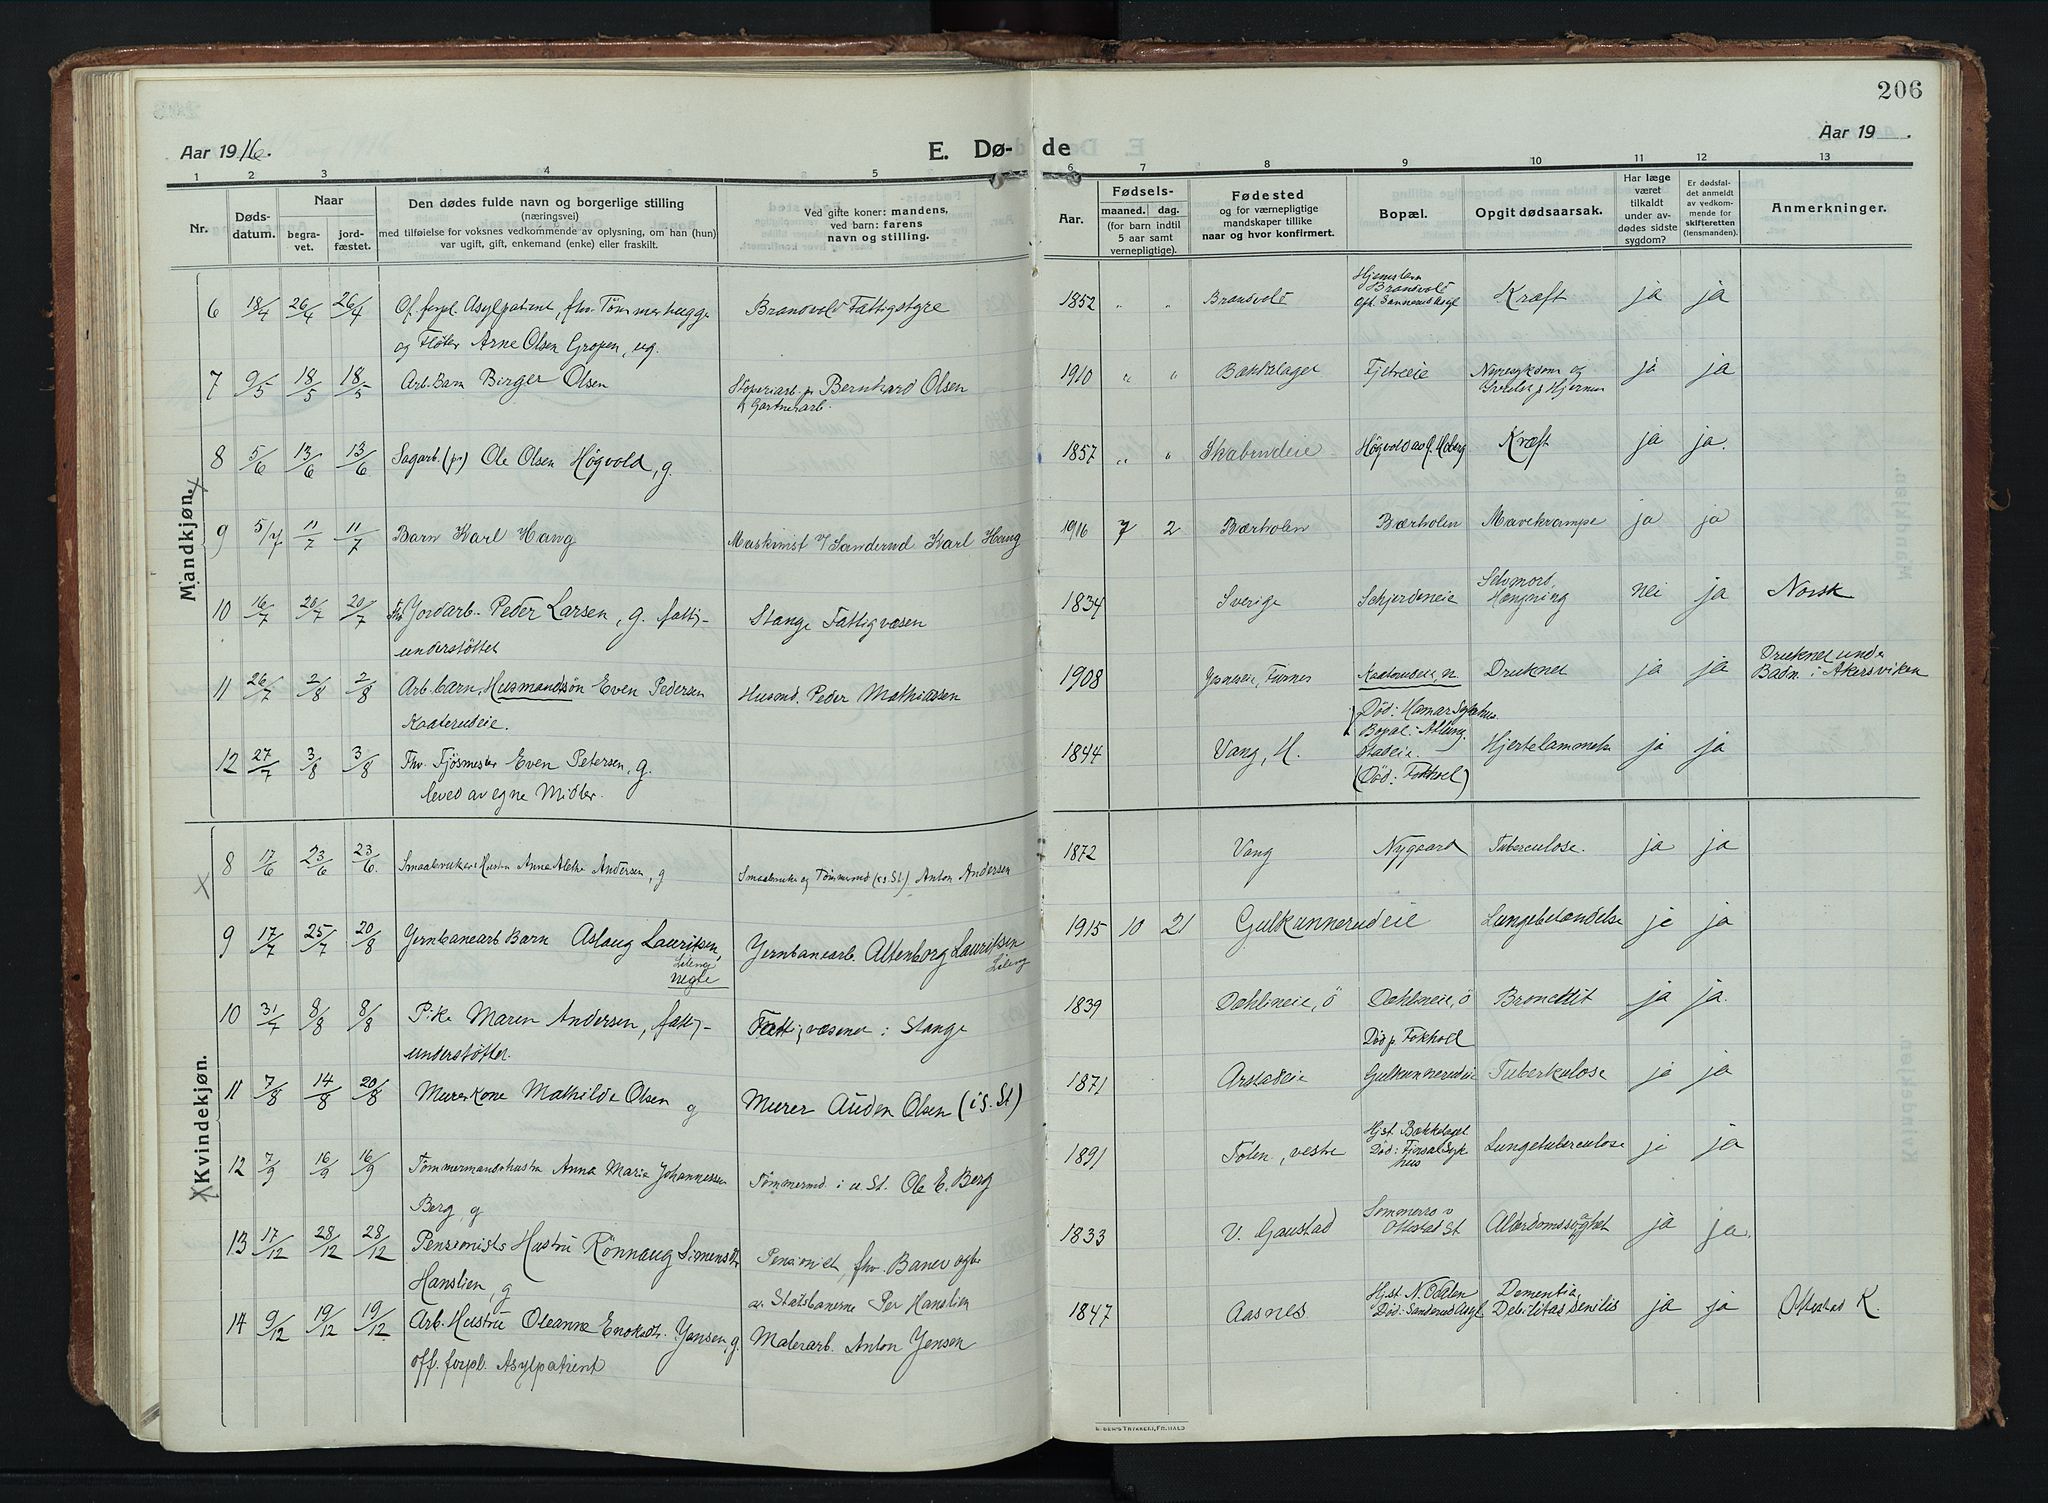 206
Aar 1916.
E. Dø-
de
Aar 19 .
1 2 3 4 5 6 7 8 9 10 11 12 13
Nr.
Døds-
datum.
Naar
begra-
vet.
jord-
fæstet.
Den dødes fulde navn og borgerlige stilling
(næringsvei)
med tilføielse for voksnes vedkommende av oplysning, om han (hun)
var ugift, gift, enkemand (enke) eller fraskilt.
Ved gifte koner: mandens,
ved barn: farens
navn og stilling.
Aar.
Fødsels-
maaned. dag.
(for barn indtil
5 aar samt
vernepligtige).
Fødested
og for værnepligtige
mandskaper tillike
naar og hvor konfirmert.
Bopæl.
Opgit dødsaarsak.
Har læge
været
tilkaldt
under av-
dødes sidste
sygdom?
Er dødsfal-
det anmeldt
av vedkom-
mende for
skifteretten
(lensmanden).
Anmerkninger.
Mandkjøn.
6 18/4 26/4 26/4 Of. forpl. Asylpatient, fhv. Tömmerhugge
og Fløter Arne Olsen Gropen, ug.
Brandvold Fattigstyre
1852 " " Brandvold
Hjemstavn
Brandvold
Sanderud Asyl
Kræft ja ja
7 9/5 18/5 18/5 Arb. Barn Birger Olsen
Bernhard Olsen
Gartnerarb.
1910 " " Bækkelaget
Nyresykdom og
Hjernen
ja ja
8 5/6 13/6 13/6 Sagarb. (pr) Ole Olsen Högvold, g.
1857 " " Skabrudeie Högvold Kræft ja ja.
9 5/7 11/7 11/7 Barn Karl Haug
Maskinist v/ Sanderud Karl Haug
1916 7 2 Bærholen Bærholen Mavekrampe ja ja
10 16/7 20/7 20/7 Jordarb. Peder Larsen, g. fattig-
understøttet
Stange Fattigvæsen
1834 Sverige Schjerdeneie
Selvmord,
Hængning
nei ja Norsk
11 26/7 2/8 2/8 Arb. barn, Husmandssön Even Pedersen
Kaaterudeie.
Husmd. Peder Mathiassen
1908 Furnes Kaaterudeie, n. Druknet ja ja
Druknet under
Badn. i Akersviken
Död: Hamar Sykehus.
12 27/7 3/8 3/8 Fhv. Fjøsmester Even Petersen, g.
leved av egne Midler.
1844 Vang, H.
Bopæl:
(Död: Fokhol)
Hjertelammelse ja ja
Kvindekjøn.
8 17/6 23/6 23/6. Hustru Anne Andersen, g
Smaabruker og Tømmermd (i s. St.) Anton Andersen
1872 Vang Nygaard Tuberculose. ja ja
9 17/7 25/7 20/8 Jernbanearb Barn Aslaug Lauritsen,
negte
Jernbanearb. Altenborg Lauritsen
1915 10 21 Gulkunnerudeie Lungebetændelse ja ja
10 31/7 8/8 8/8 Pike Maren Andersen, fattig-
understøttet.
Fattigvæsenet i Stange
1839 Dæhlineie, ö Dæhlineie, ö Bronchit ja ja.
Död p. Fokhol
11 7/8 14/8 20/8 Murerkone Mathilde Olsen g
Murer Auden Olsen (i s. St)
1871 Arstadeie Gulkunnerudeie Tuberkulose ja ja
12 7/9 16/9 16/9 Tömmermandshustru Anna Maria Johannessen
Berg, g
Tömmermd. i u. St. Ole E. Berg
1891 Toten, vestre
Hjst. Bækkelaget
Död: Sykehus
Lungetuberculose ja ja
13 17/12 28/12 28/12 Pensionists Hustru Rönnaug Simensdtr
Hanslien, g
Pensionist, fhv.
av Statsbanerne Per Hanslien
1833 V. Gaustad
Sommerro v
Ottestad St
Alderdomssvaghet ja ja.
14 9/12 19/12 19/12 Arb. Hustru Oleanna Enoksdtr. Jensen, g.
off. forpl. Asylpatient
Malerarb. Anton Jensen
1847 Aasnes
Hjst. N. Odalen
Död: Sanderud Asyl
Dementia,
Debilitas senilis
ja ja Ottestad K.